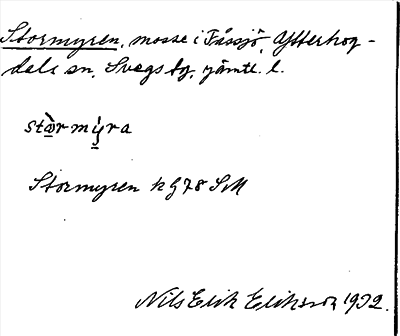 Stormyren, mosse i Fåssjö, Ytterhog-
dals sn, Svegs tg, Jämtl. l.
stòrmýra
Stormyren hg 78 SM
Nils Erik Eriksson 1932.